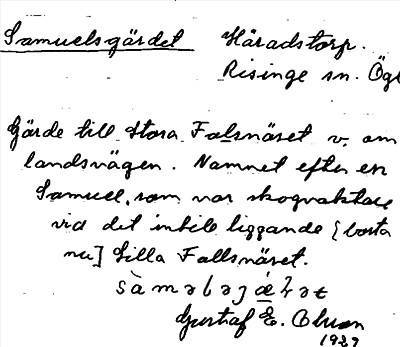 Samuelsgärdet Häradstorp.
Risinge sn. Ögl
Gärde till Stora Falsnäset v. om
landsvägen. Namnet efter en
Samuel, som var skogvaktare
vid det intill liggande [borta
nu] Lilla Fallsnäset.
Gustaf E. Olson